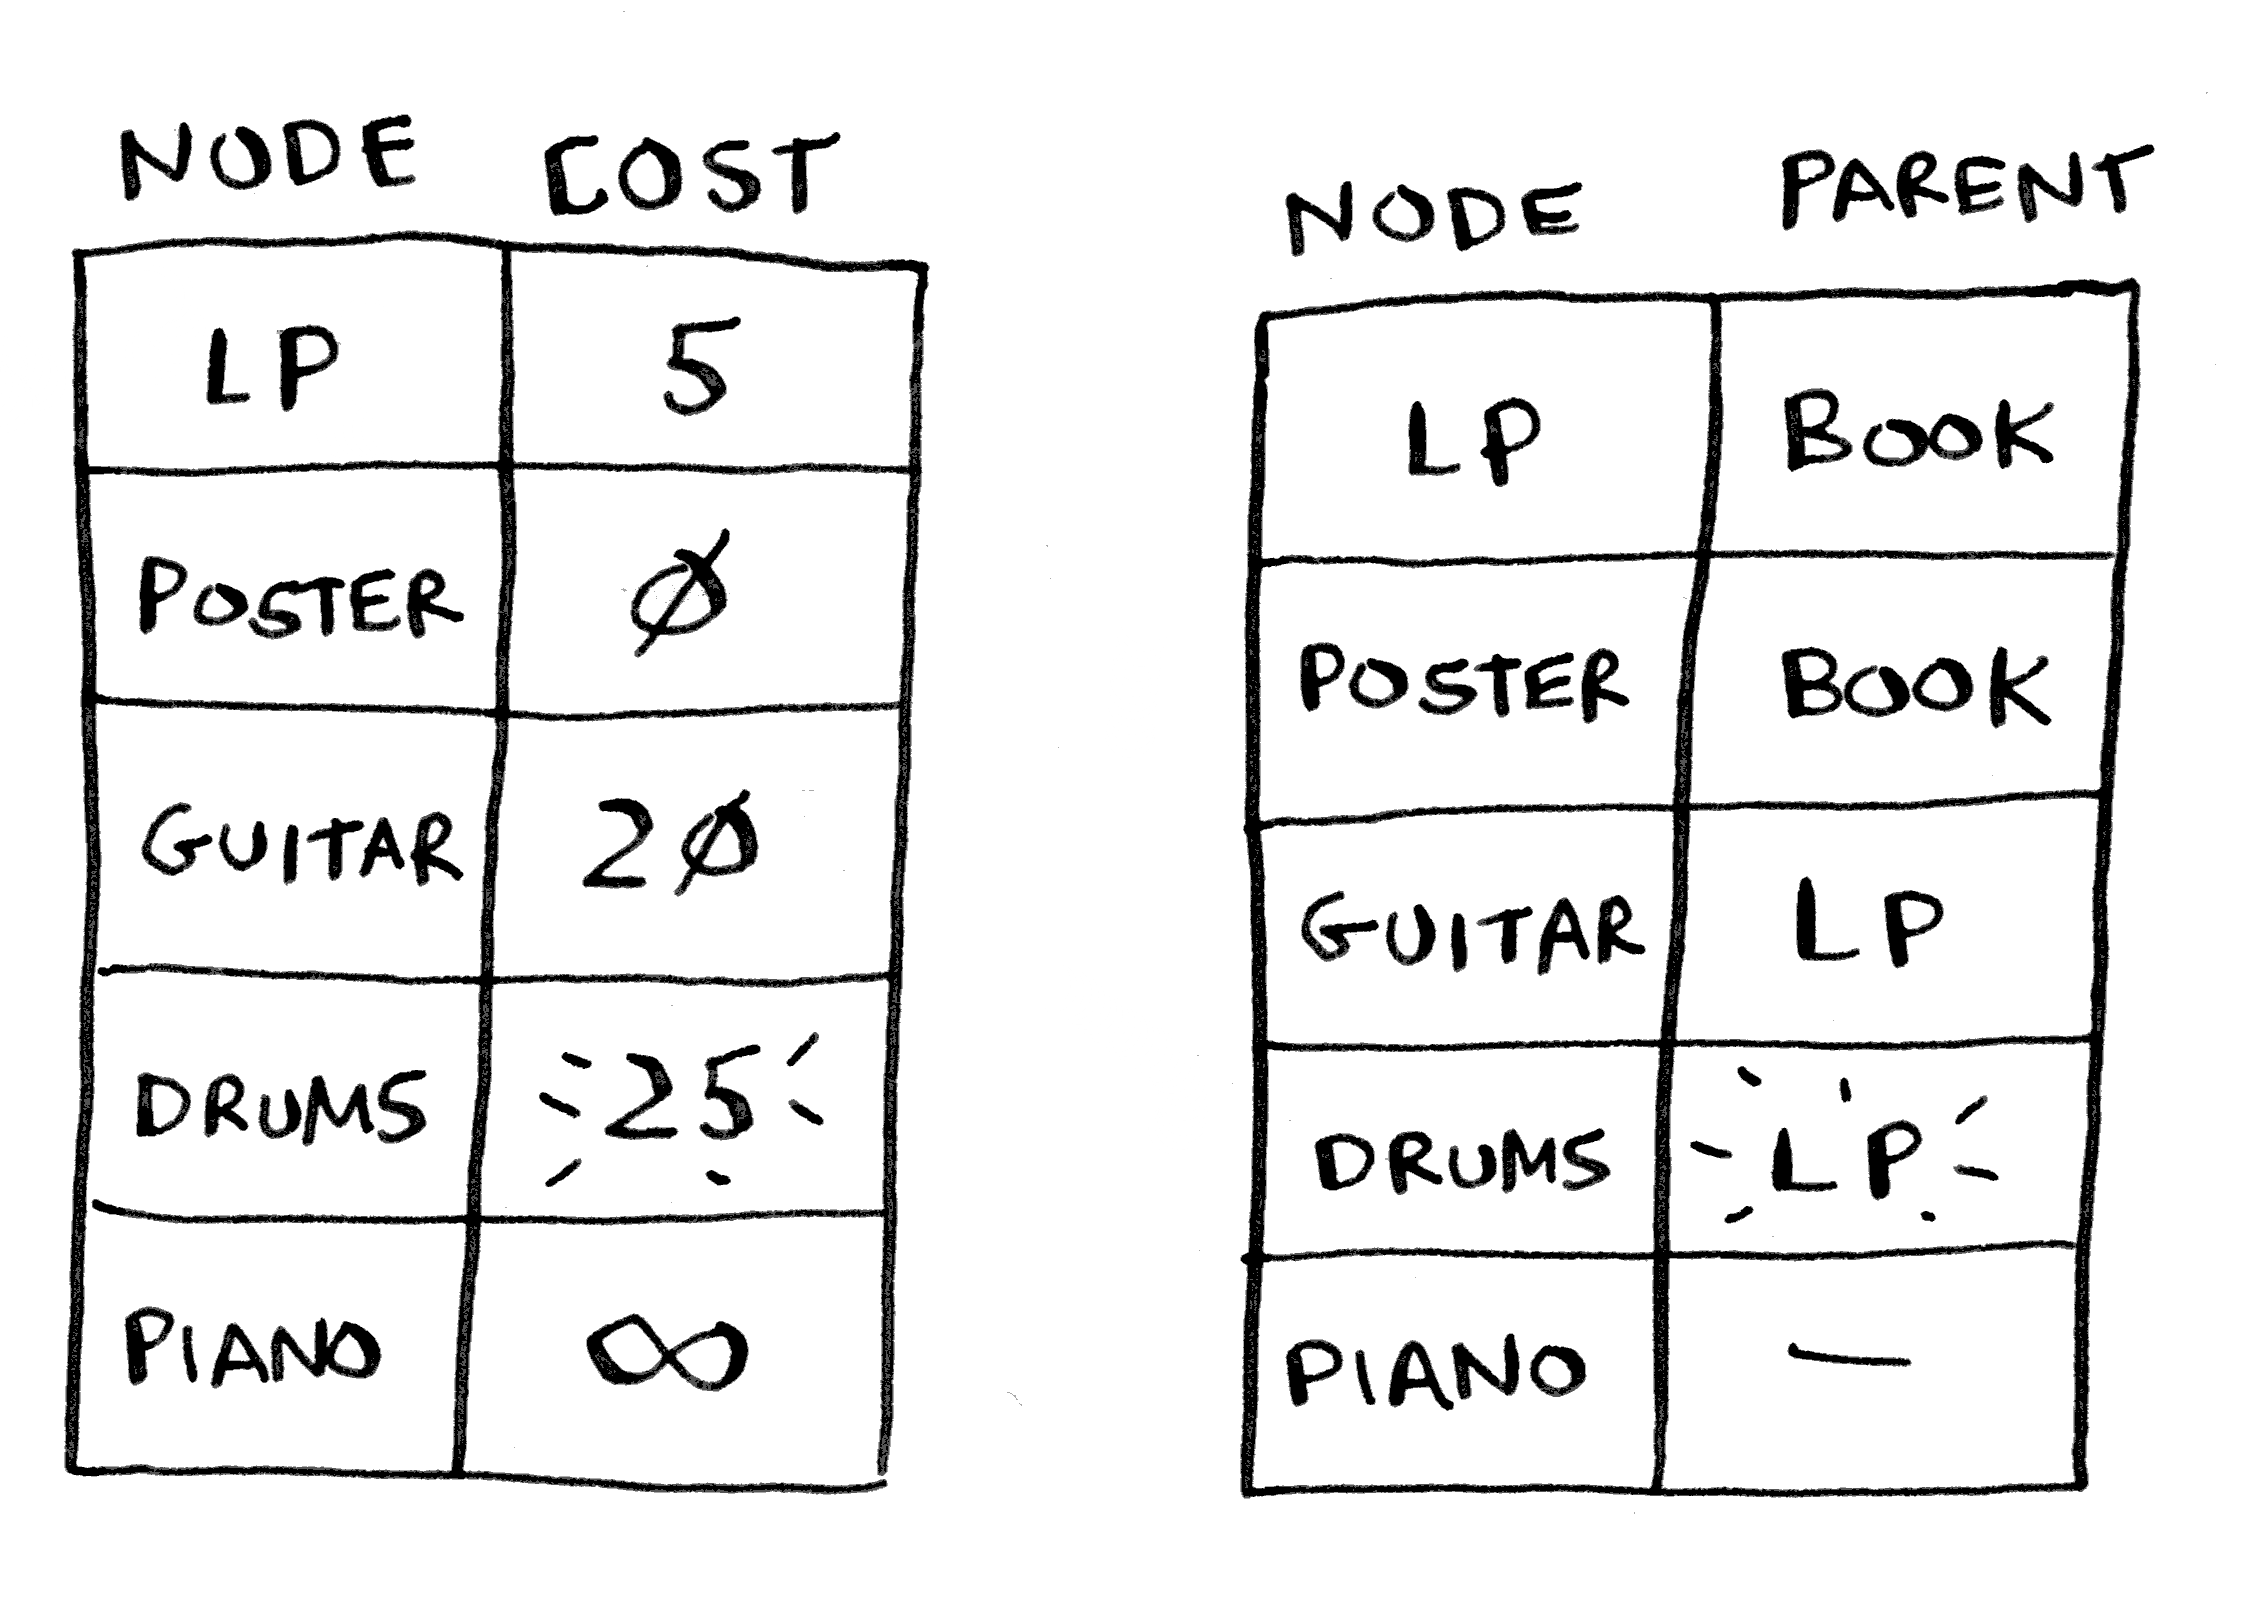 NODE COST
LP 5
POSTER 0
GUITAR 20
DRUMS 25
PIANO ∞
NODE PARENT
LP BOOK
POSTER BOOK
GUITAR LP
DRUMS LP
PIANO —